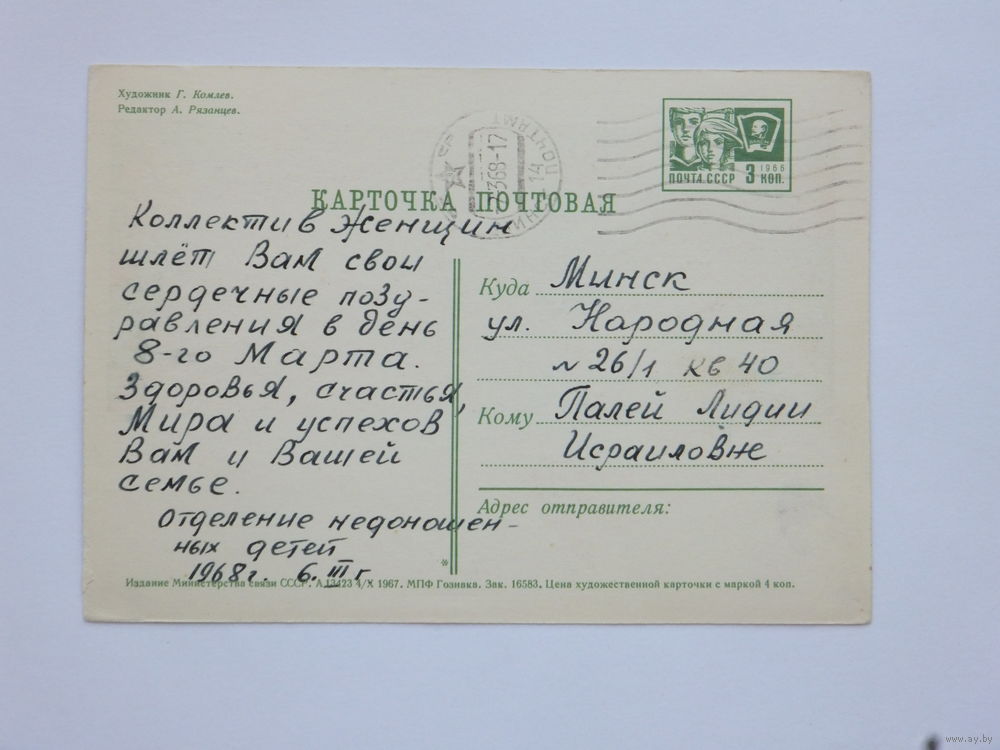 Художник Г. Комлев.
Редактор А. Рязанцев.
ПОЧТА СССР 3 1966 КОП.
КАРТОЧКА ПОЧТОВАЯ
Коллектив женщин
шлёт Вам свои
сердечные позд-
равления в день
8-го Марта.
Здоровья, счастья,
Мира и успехов
Вам и Вашей
семье.
Отделение недоношен-
ных детей
1968г. 6.III г
Куда Минск
ул. Народная
№ 26/1 кв 40
Кому Палей Лидии
Исраиловне
Адрес отправителя:
*
Издание Министерства связи СССР. А13423 4/X 1967. МПФ Гознака. Зак. 16583. Цена художественной карточки с маркой 4 коп.
www.ay.by